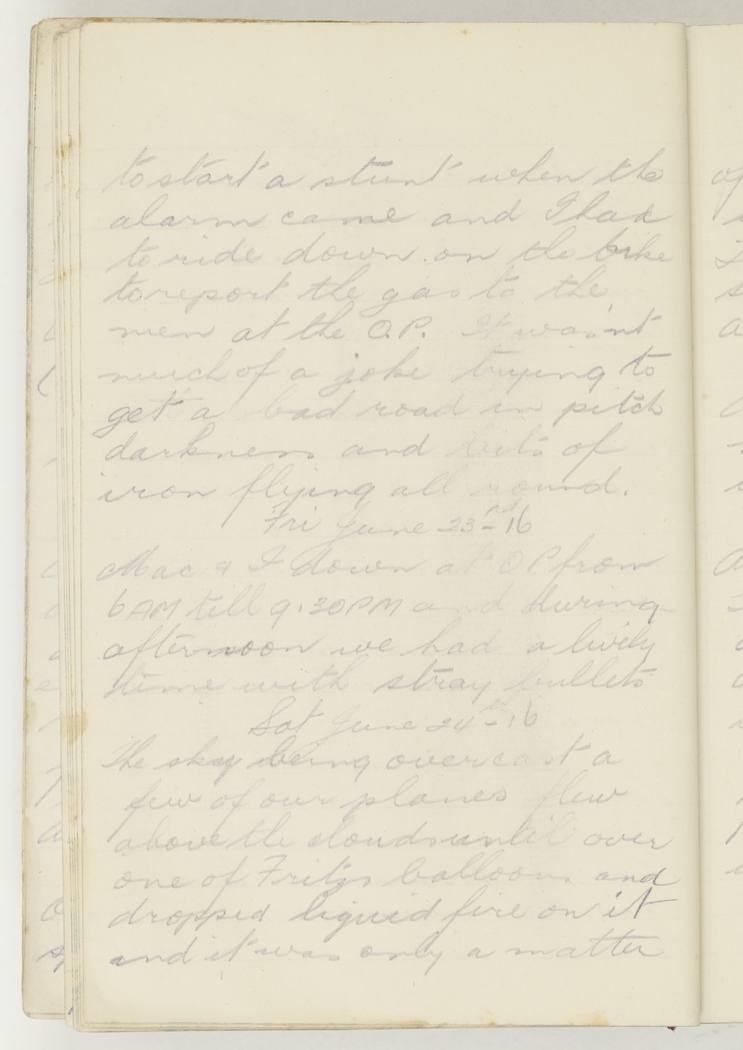 to start a stunt when the
alarm came and I had
to ride down on the bike
to report the gas to the
men at the O.P. It was'nt
much of a joke trying to
get a bad road in pitch
darkness and bits of
iron flying all round.
Fri June 23rd-16
Mac & I down at O P from
6 AM till 9.30 PM and during
afternoon we had a lively
time with stray bullets
Sat June 24th-16
The sky being overcast a
few of our planes flew
above the clouds until over
one of Fritzs balloons and
dropped liquid fire on it
and it was only a matter